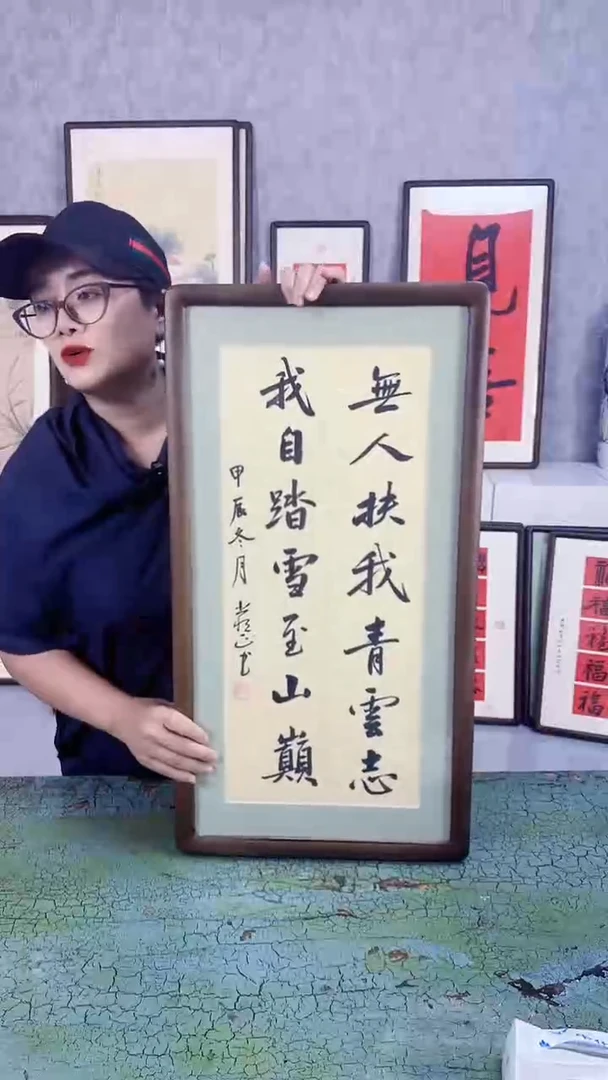 無人扶我青雲志
我自踏雪至山巔
甲辰冬月
見
福
福
福
福
福